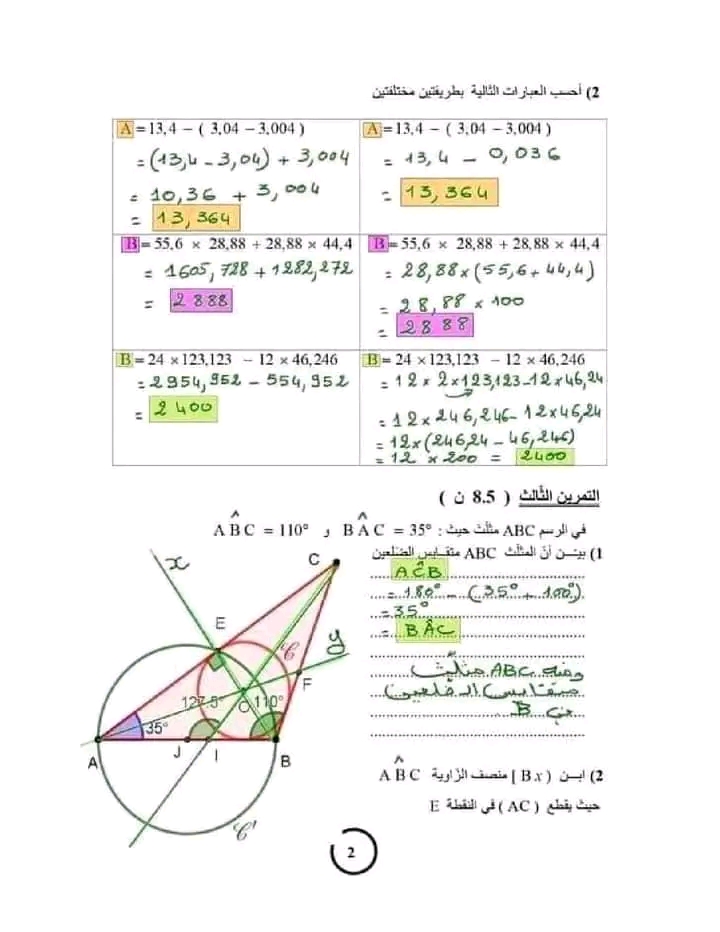 2) أحسب العبارات التالية بطريقتين مختلفتين
A = 13,4 − ( 3,04 − 3,004 )
= (13,4 − 3,04) + 3,004
= 10,36 + 3,004
= 13,364
A = 13,4 − ( 3,04 − 3,004 )
= 13,4 − 0,036
= 13,364
B = 55,6 × 28,88 + 28,88 × 44,4
= 1605,728 + 1282,272
= 2888
B = 55,6 × 28,88 + 28,88 × 44,4
= 28,88 × (55,6 + 44,4)
= 28,88 × 100
= 2888
B = 24 × 123,123 − 12 × 46,246
= 2954,952 − 554,952
= 2400
B = 24 × 123,123 − 12 × 46,246
= 12 × 2 × 123,123 − 12 × 46,24
= 12 × 246,246 − 12 × 46,24
= 12 × (246,24 − 46,246)
= 12 × 200 = 2400
التمرين الثّالث ( 8.5 ن )
في الرسم ABC مثلّث حيث : BÂC = 35° و AB̂C = 110°
1) بيــن أنّ المثلّث ABC متقايس الضلعين
AĈB
= 180° − (35° + 100°)
= 35°
= BÂC
ومنه ABC مثلّث
متقايس الضلعين
في B
2) ابــن ( Bx ] منصف الزّاوية AB̂C
حيث يقطع ( AC ) في النقطة E
x
C
E
y
𝒞
F
127.5°
O
110°
35°
A
J
I
B
𝒞'
2